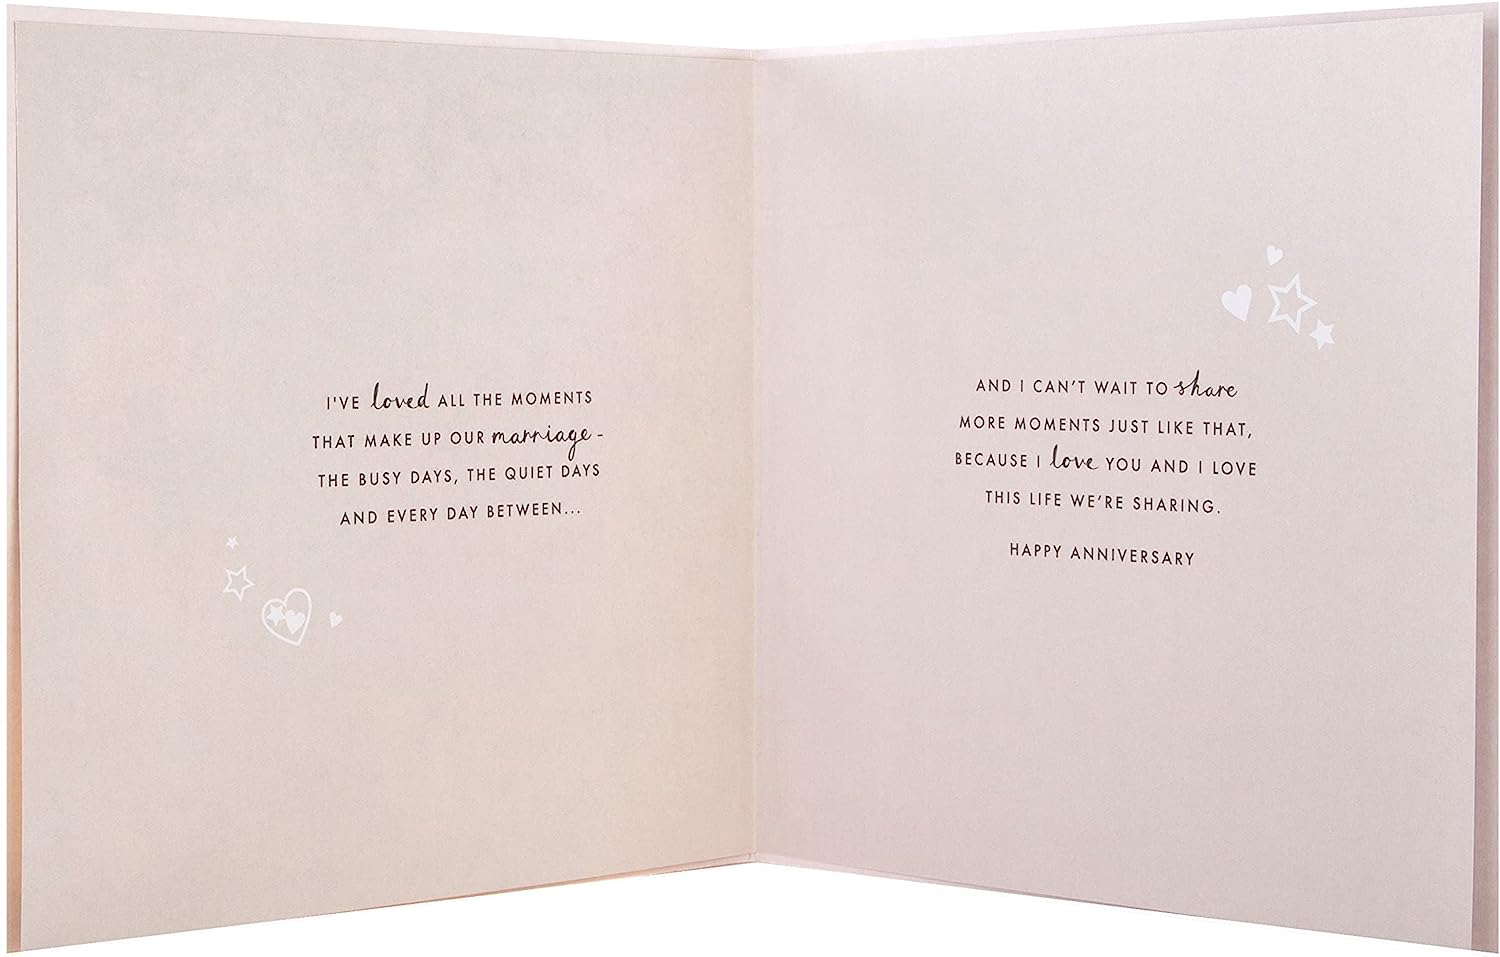 I'VE loved ALL THE MOMENTS
THAT MAKE UP OUR marriage -
THE BUSY DAYS, THE QUIET DAYS
AND EVERY DAY BETWEEN...
AND I CAN'T WAIT TO share
MORE MOMENTS JUST LIKE THAT,
BECAUSE I love YOU AND I LOVE
THIS LIFE WE'RE SHARING.
HAPPY ANNIVERSARY